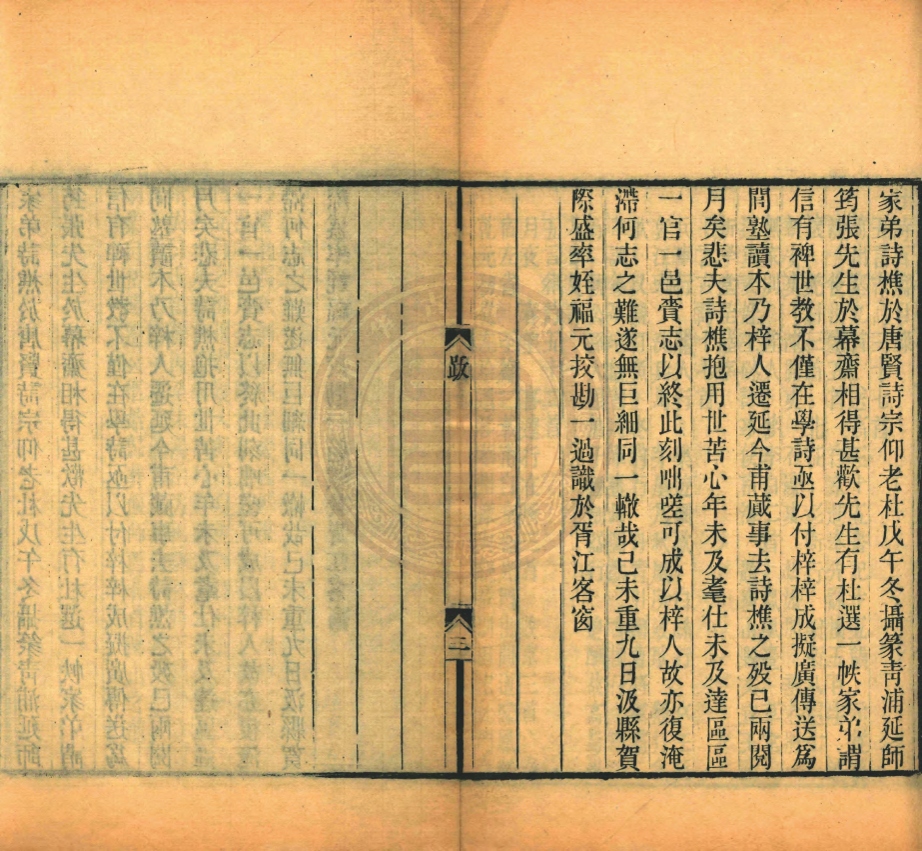 家弟詩樵於唐賢詩宗仰老杜戊午冬攝篆靑浦延師
筠張先生於幕齋相得甚歡先生有杜選一帙家弟謂
信有裨世教不僅在學詩亟以付梓梓成擬廣傳送爲
間塾讀本乃梓人遷延今甫蕆事去詩樵之殁已兩閱
月矣悲夫詩樵抱用世苦心年未及耄仕未及達區區
一官一邑賫志以終此刻咄嗟可成以梓人故亦復淹
滯何志之難遂無巨細同一轍哉己未重九日汲縣賀
際盛率姪福元挍勘一過識於胥江客窗
跋
三